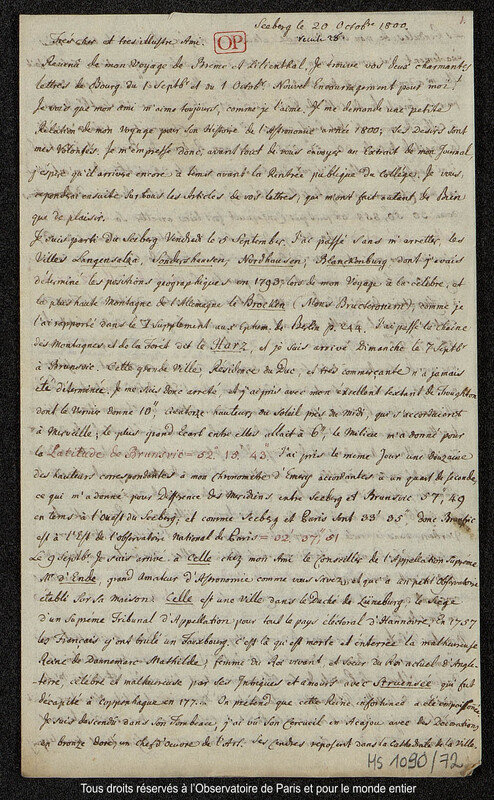 1.
Seeberg le 20 Octobr. 1800.
OP
reçu le 28.
Très cher et très illustre Ami.
Revenu de mon Voyage de Breme et Lilienthal, Je trouve vos deux charmantes
lettres de Bourg du 1 Septbr et du 1 Octobr. Nouvel Encouragement pour moi!
Je vois que mon ami m'aime toujours, comme je l'aime. Il me demande une petite
Relation de mon Voyage pour son Histoire de l'Astronomie année 1800; Ses Desirs sont
mes Volontés. Je m'empresse donc, avant tout de vous envoyer un Extrait de mon Journal,
j'espere qu'il arrivera encore à tems avant la Rentrée publique du Collège. Je vous
repondrai ensuite sur tous les Articles de vos lettres, qui m'ont fait autant de Bien
que de plaisir.
Je suis parti du Seeberg Vendredi le 5 September. J'ai passé sans m'arretter, les
Villes Langensalza, Sondershausen, Nordhausen, Blanckenburg dont j'avais
determiné les positions geographiques en 1793 lors de mon Voyage à la célebre, et
la plus haute Montagne de l'Allemagne le Brocken (Mons Bructerorum), comme je
l'ai rapporté dans le I Supplement aux Ephem. de Berlin p. 244. J'ai passé la chaine
des Montagnes et de la Forêt del le Harz, et je suis arrivé Dimanche le 7 Septbr.
à Brunsvic. Cette grande Ville, Résidence du Duc, et très commerçante n'a jamais
été déterminée. Je me suis donc arreté, et j'ai pris avec mon excellent Sextant de Troughton
dont le Vernier donne 10", hauteurs du Soleil près du Midi, qui s'accordoient
à Merveille, le plus grand écart entre elles allait à 6", le Milieu m'a donné pour
la Latitude de Brunsvic = 52° 15' 43". J'ai pris le même Jour une douzaine
des hauteurs correspondantes à mon chronomètre d'Emery accordantes à un quart de seconde,
ce qui m'a donné pour Difference des Meridiens entre Seeberg et Brunsvic 57", 49
en tems à l'Ouest du Seeberg, et comme Seeberg et Paris sont 33' 35" donc Brunsvic
est à l'Est de l'Observatoire National de Paris = 32' 37", 51
Le 9 Septbr. Je suis arrivé à Celle chez mon Ami le Conseiller de l'Appellation Supreme
Mr. d'Ende, grand Amateur d'Astronomie comme vous savez, et qui a un petit Observatoire
etabli sur sa Maison. Celle est une Ville dans le Duché de Lüneburg, le Siège
d'un Supreme Tribunal d'Appellation, pour tout le pays electoral d'Hannovre, En 1757
les Francais y ont brulé un Fauxbourg, c'est là qu'est morte et enterrée la malheureuse
Reine de Dannemarc Mathilde, femme du Roi vivant, et soeur du Roi actuel d'Angle-
terre, célebre et malheureuse par ses Intrigues et amours avec Struensée qui fut
decapité à Coppenhague en 177... On pretend que cette Reine infortunée a été empoisonnée.
Je suis descendu dans son Tombeau, j'ai vû son Cercueil en Acajou avec des Decorations
en bronze doré, un chef d'Oeuvre de l'Art. Ses Cendres reposent dans la Cathedrale de la Ville.
MS 1090/72
Tous droits réservés à l'Observatoire de Paris et pour le monde entier